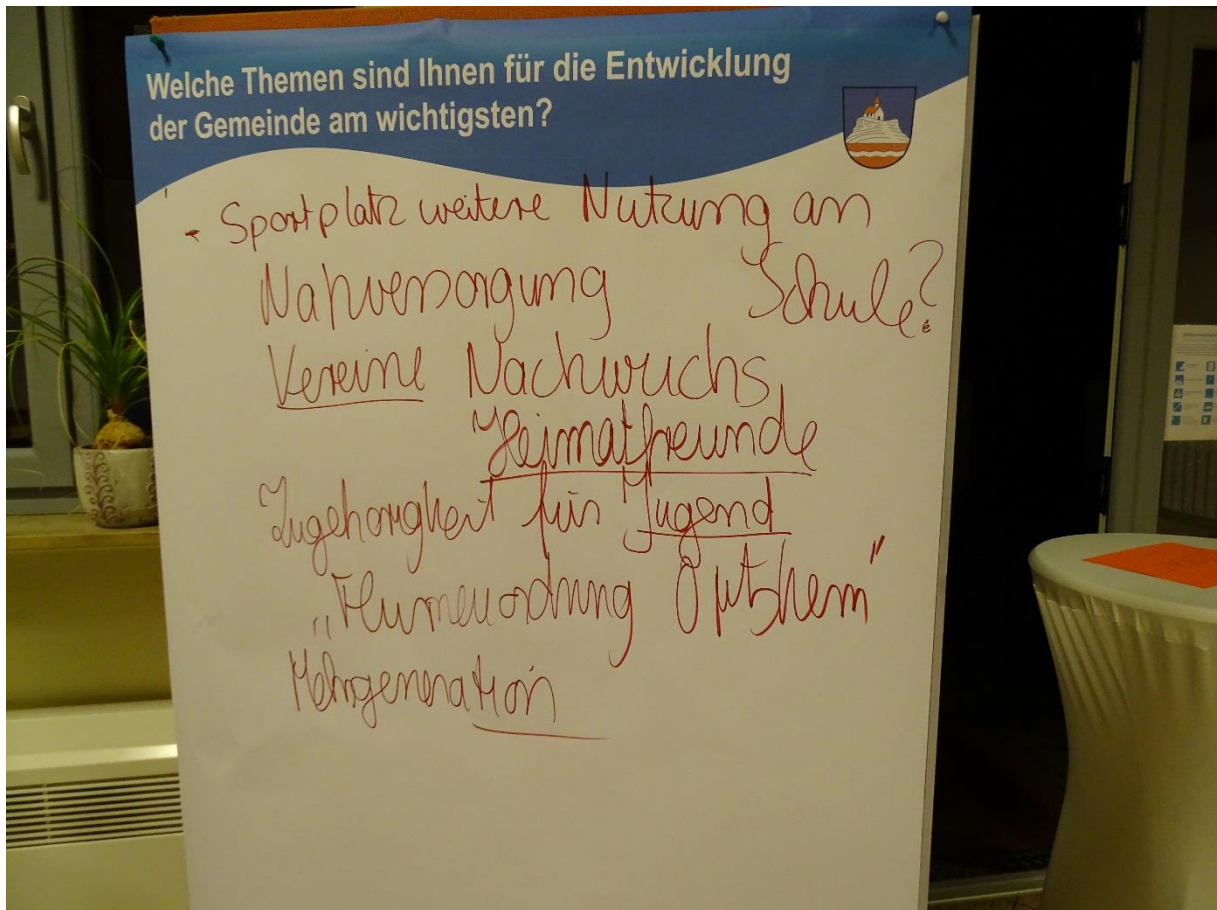 Welche Themen sind Ihnen für die Entwicklung
der Gemeinde am wichtigsten?
- Sportplatz weitere Nutzung an
Nahversorgung Schule?
Vereine Nachwuchs
Heimatfreunde
Zugehörigkeit für Jugend
„Flurneuordnung "
Mehrgeneration